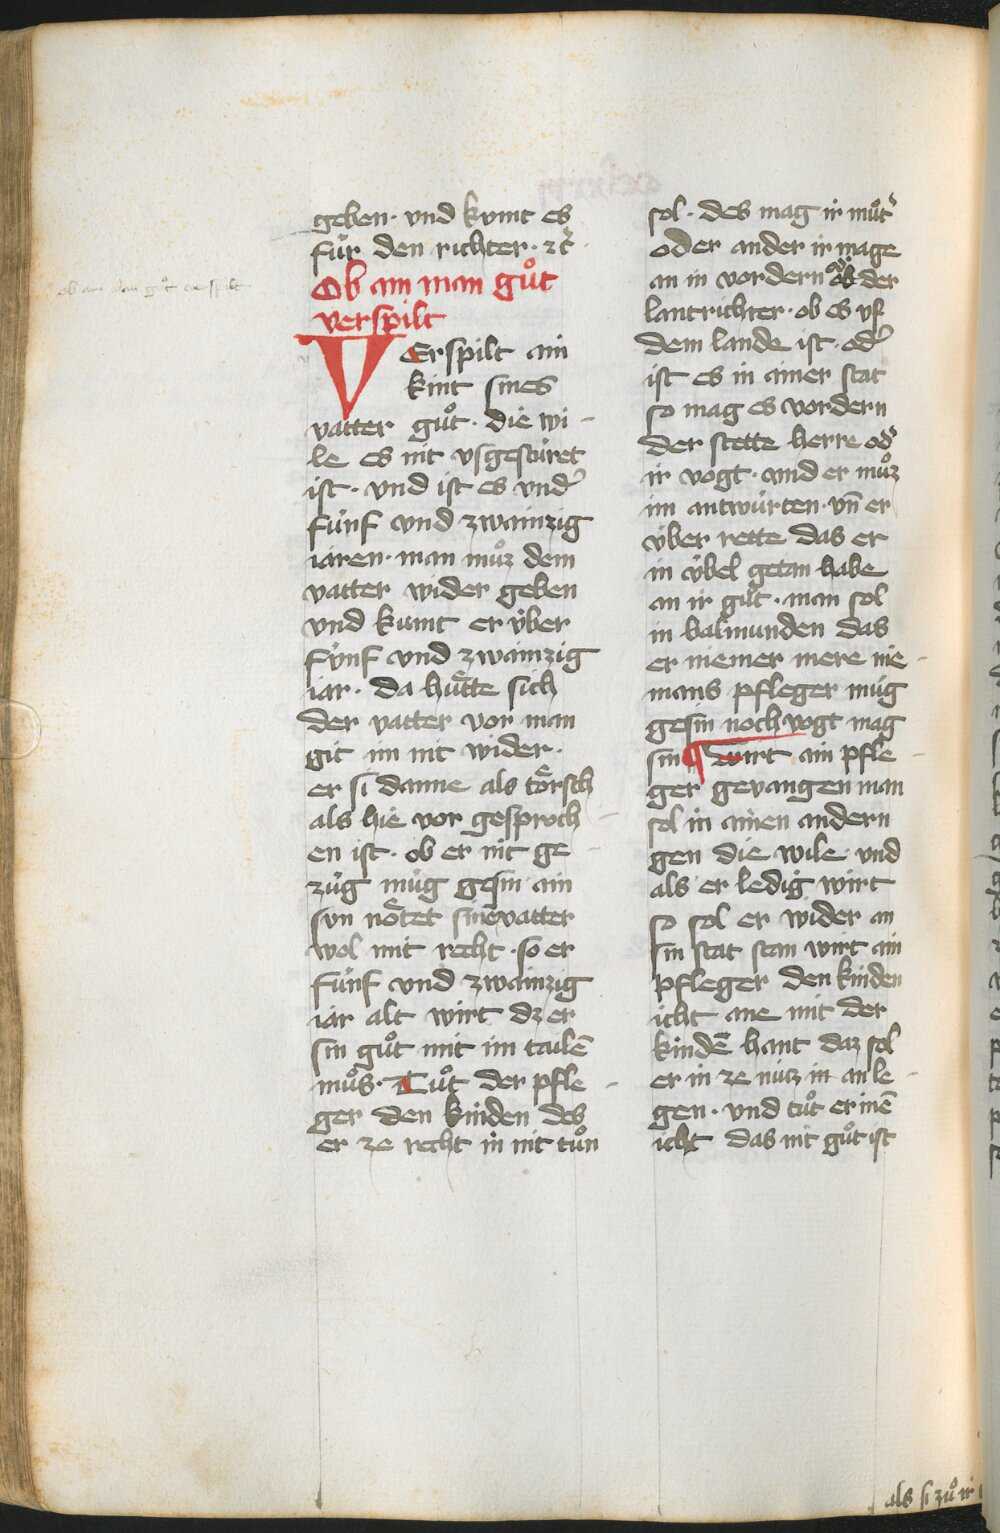 geben · vnd kvmt es
fúr den richter · ꝛc̃ ·
Ob ain man gůt
verspilt
ob ain man gůt verspilt
VErspilt ain
kint sines
vatter gůt · die wi-
le es nit vsgestúret
ist · vnd ist es vnd̾
fúnf vnd zwainzig
iaren · man můz dem
vatter wider geben
vnd kumt er v́ber
fv́nf vnd zwainzig
iar · da hu̍tte sich
der vatter vor man
git im nit wider ·
er si danne als toͤrsch
als hie vor gesproch-
en ist · ob er nit ge-
zúg múg gesin ain
svn noͤtet sinē vatter
wol mit recht · so er
fúnf vnd zwainzig
iar alt wirt dz er
sin gůt mit im tailē
můs · Tůt der pfle-
ger den kinden des
er ze recht in nit tůn
sol · des mag ir můt̾
oder ander ir mage
an in vordern ob der
lantrichter · ob es vf
dem lande ist · od̾
ist es in ainer stat
so mag es vordern
der stette herre od̾
ir vogt · vnd er můz
im antwúrten · vn̄ er
v́ber rette das er
in v́bel getan habe
an ir gůt · man sol
in balmunden das
er niemer mere nie-
mans pfleger múg
gesin noch vogt mag
sin ¶ wirt ain pfle-
ger gevangen man
sol in ainen andern
gen die wile · vnd
als er ledig wirt
so sol er wider an
sin stat stan wirt ain
pfleger den kinden
icht ane mit der
kindē hant daz sol
er in ze núz in an le-
gen · vnd tůt er inē
icht das nit gůt ist
als si zů ir